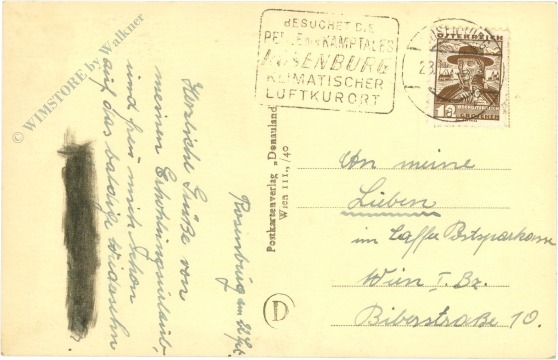 BESUCHET DIE
PERLE DES KAMPTALES
ROSENBURG
KLIMATISCHER
LUFTKURORT
ÖSTERREICH
GROSCHEN
© WIMSTORE by Walkner
Herzliche Grüße von
meinem Erholungsurlaub
und freu mich schon
auf das baldige Wiedersehn
Rosenburg am 22.
Postkartenverlag „Donauland“
Wien III., /40
D
An meine
Lieben
im Caffee Postsparkasse
Wien I. Bz.
Biberstraße 10.